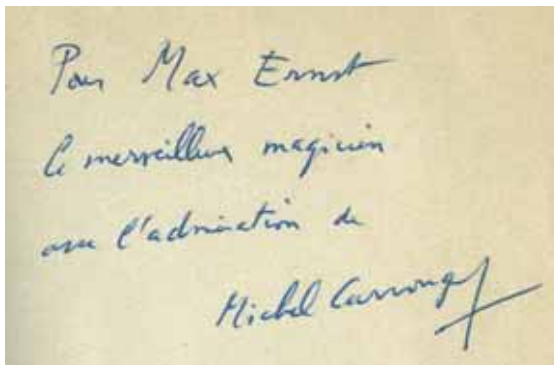 Pour Max Ernst
le merveilleux magicien
avec l'admiration de
Michel Carrouges